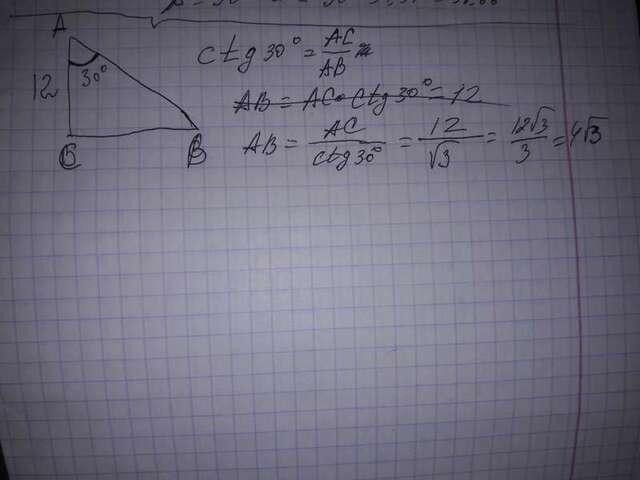 A
12
30°
C
B
ctg 30° = AC/AB
AB = AC · ctg 30° = 12
AB = AC/ctg 30° = 12/√3 = 12√3/3 = 4√3